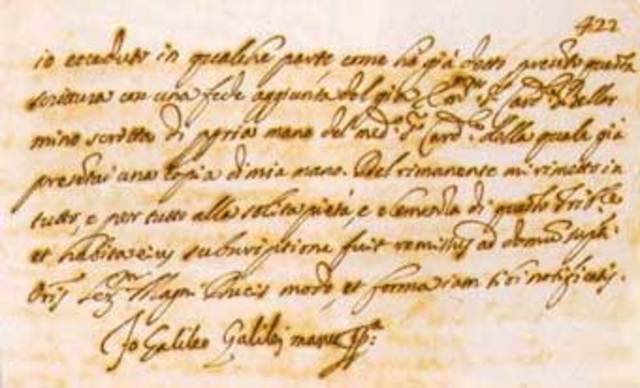 422
io ecceduto in qualche parte come ho già detto presento questa
scrittura con una fede aggiunta del già S.r Card.l Bellar
mino scritta di apria mano del med.o S.r Card.l della quale già
presentai una copia di mia mano. Del rimanente mi rimetto in
tutto, e per tutto alla solita pietà, e clemenza di questo Trib.le
et habita eius subscriptione fuit remissus ad domum supti
Oris Ser.mi Magni Ducis modo, et forma iam sibi notificatis.
Io Galileo Galilei manu pp.a